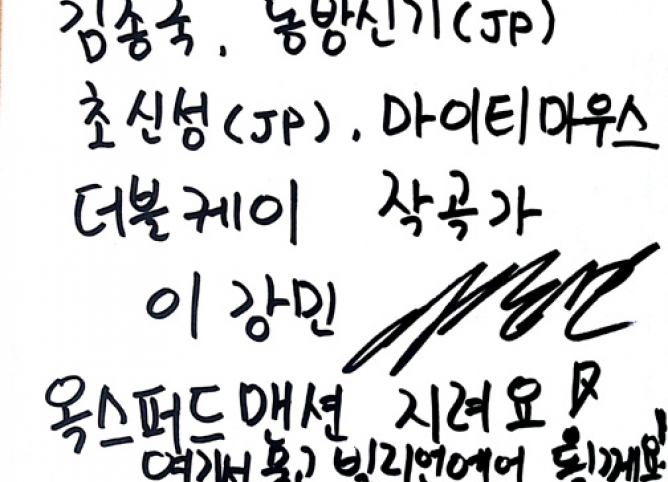 김종국, 동방신기(JP)
초신성(JP), 마이티마우스
더블케이 작곡가
이강민
옥스퍼드맨션 지려요
여기서 빌리언에어